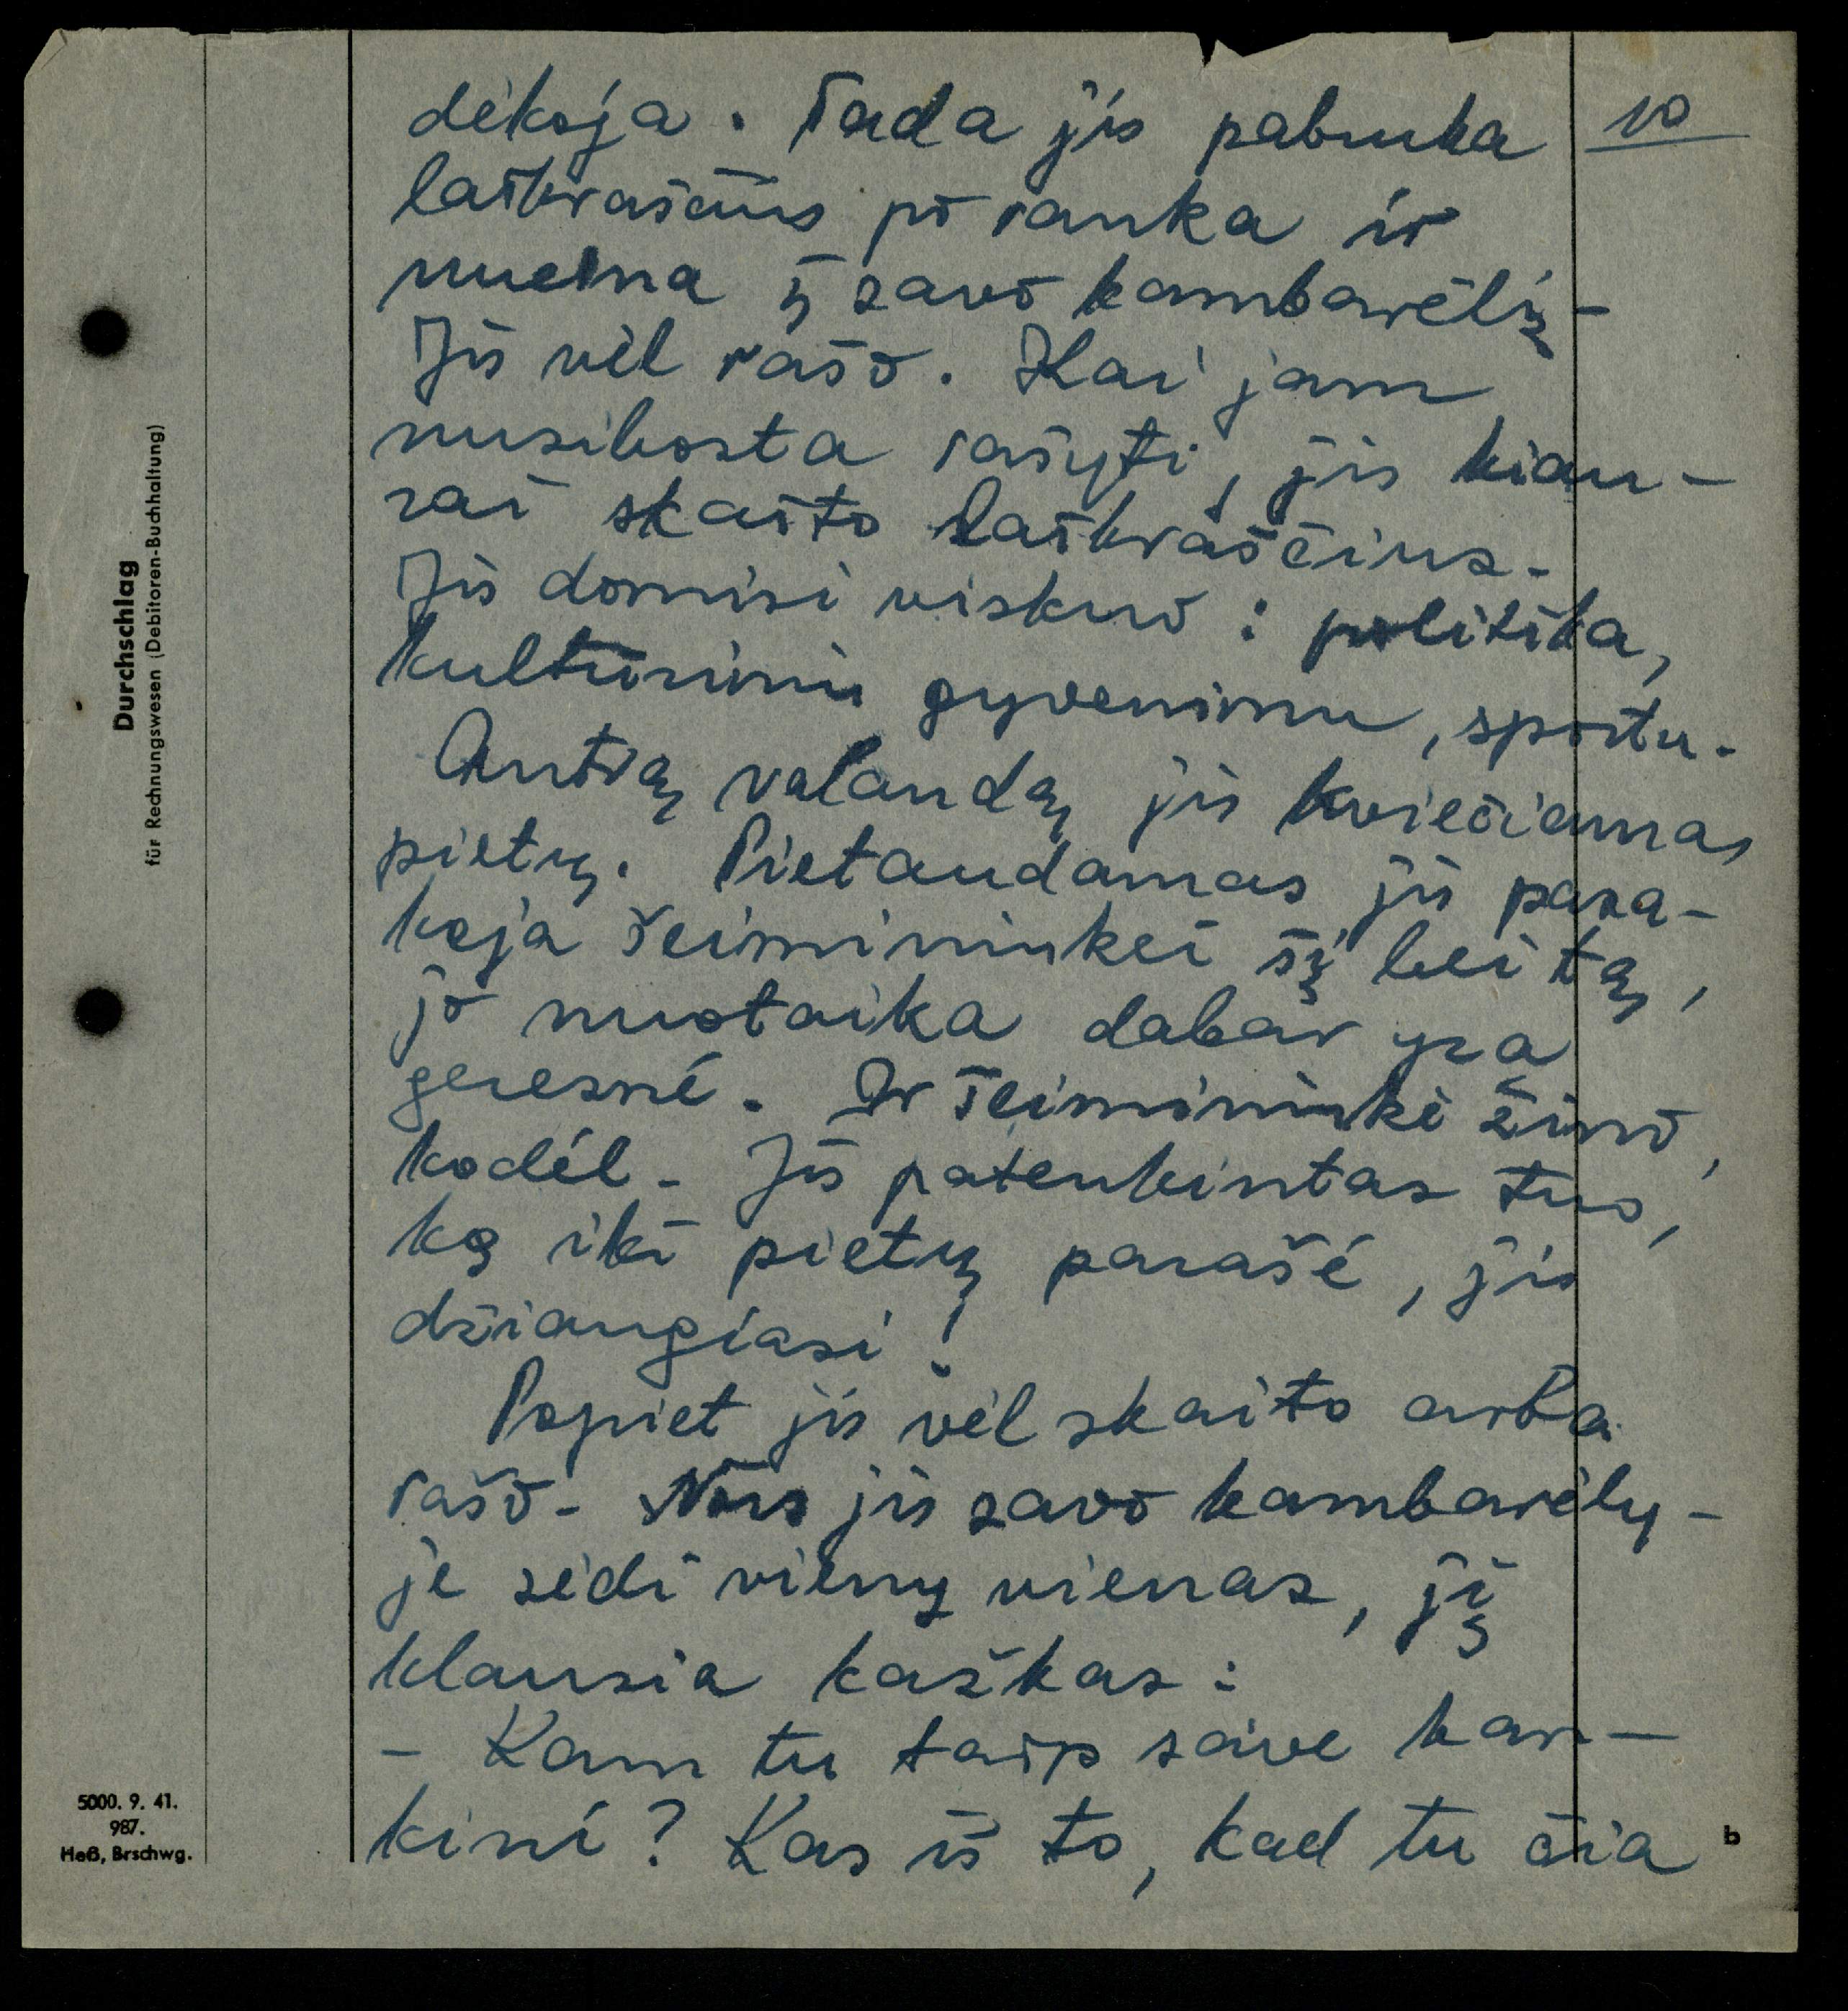 10
dėkoja. Tada jis pabruka
laikraščius po ranka ir
nueina į savo kambarėlį.
Jis vėl rašo. Kai jam
nusibosta rašyti, jis kiau-
rai skaito laikraščius.
Jis domisi viskuo: politika,
kultūriniu gyvenimu, sportu.
Antrą valandą jis kviečiamas
pietų. Pietaudamas jis pasa-
koja šeimininkei šį bei tą,
jo nuotaika dabar yra
geresnė. Ir šeimininkė žino,
kodėl. Jis patenkintas tuo,
ką iki pietų parašė, jis
džiaugiasi!
Popiet jis vėl skaito arba
rašo. Nors jis savo kambarėly-
je sėdi vienų vienas, jį
klausia kažkas:
- Kam tu taip save kan-
kini? Kas iš to, kad tu čia
Durchschlag
für Rechnungswesen (Debitoren-Buchhaltung)
5000. 9. 41.
987.
Heß, Brschwg.
b